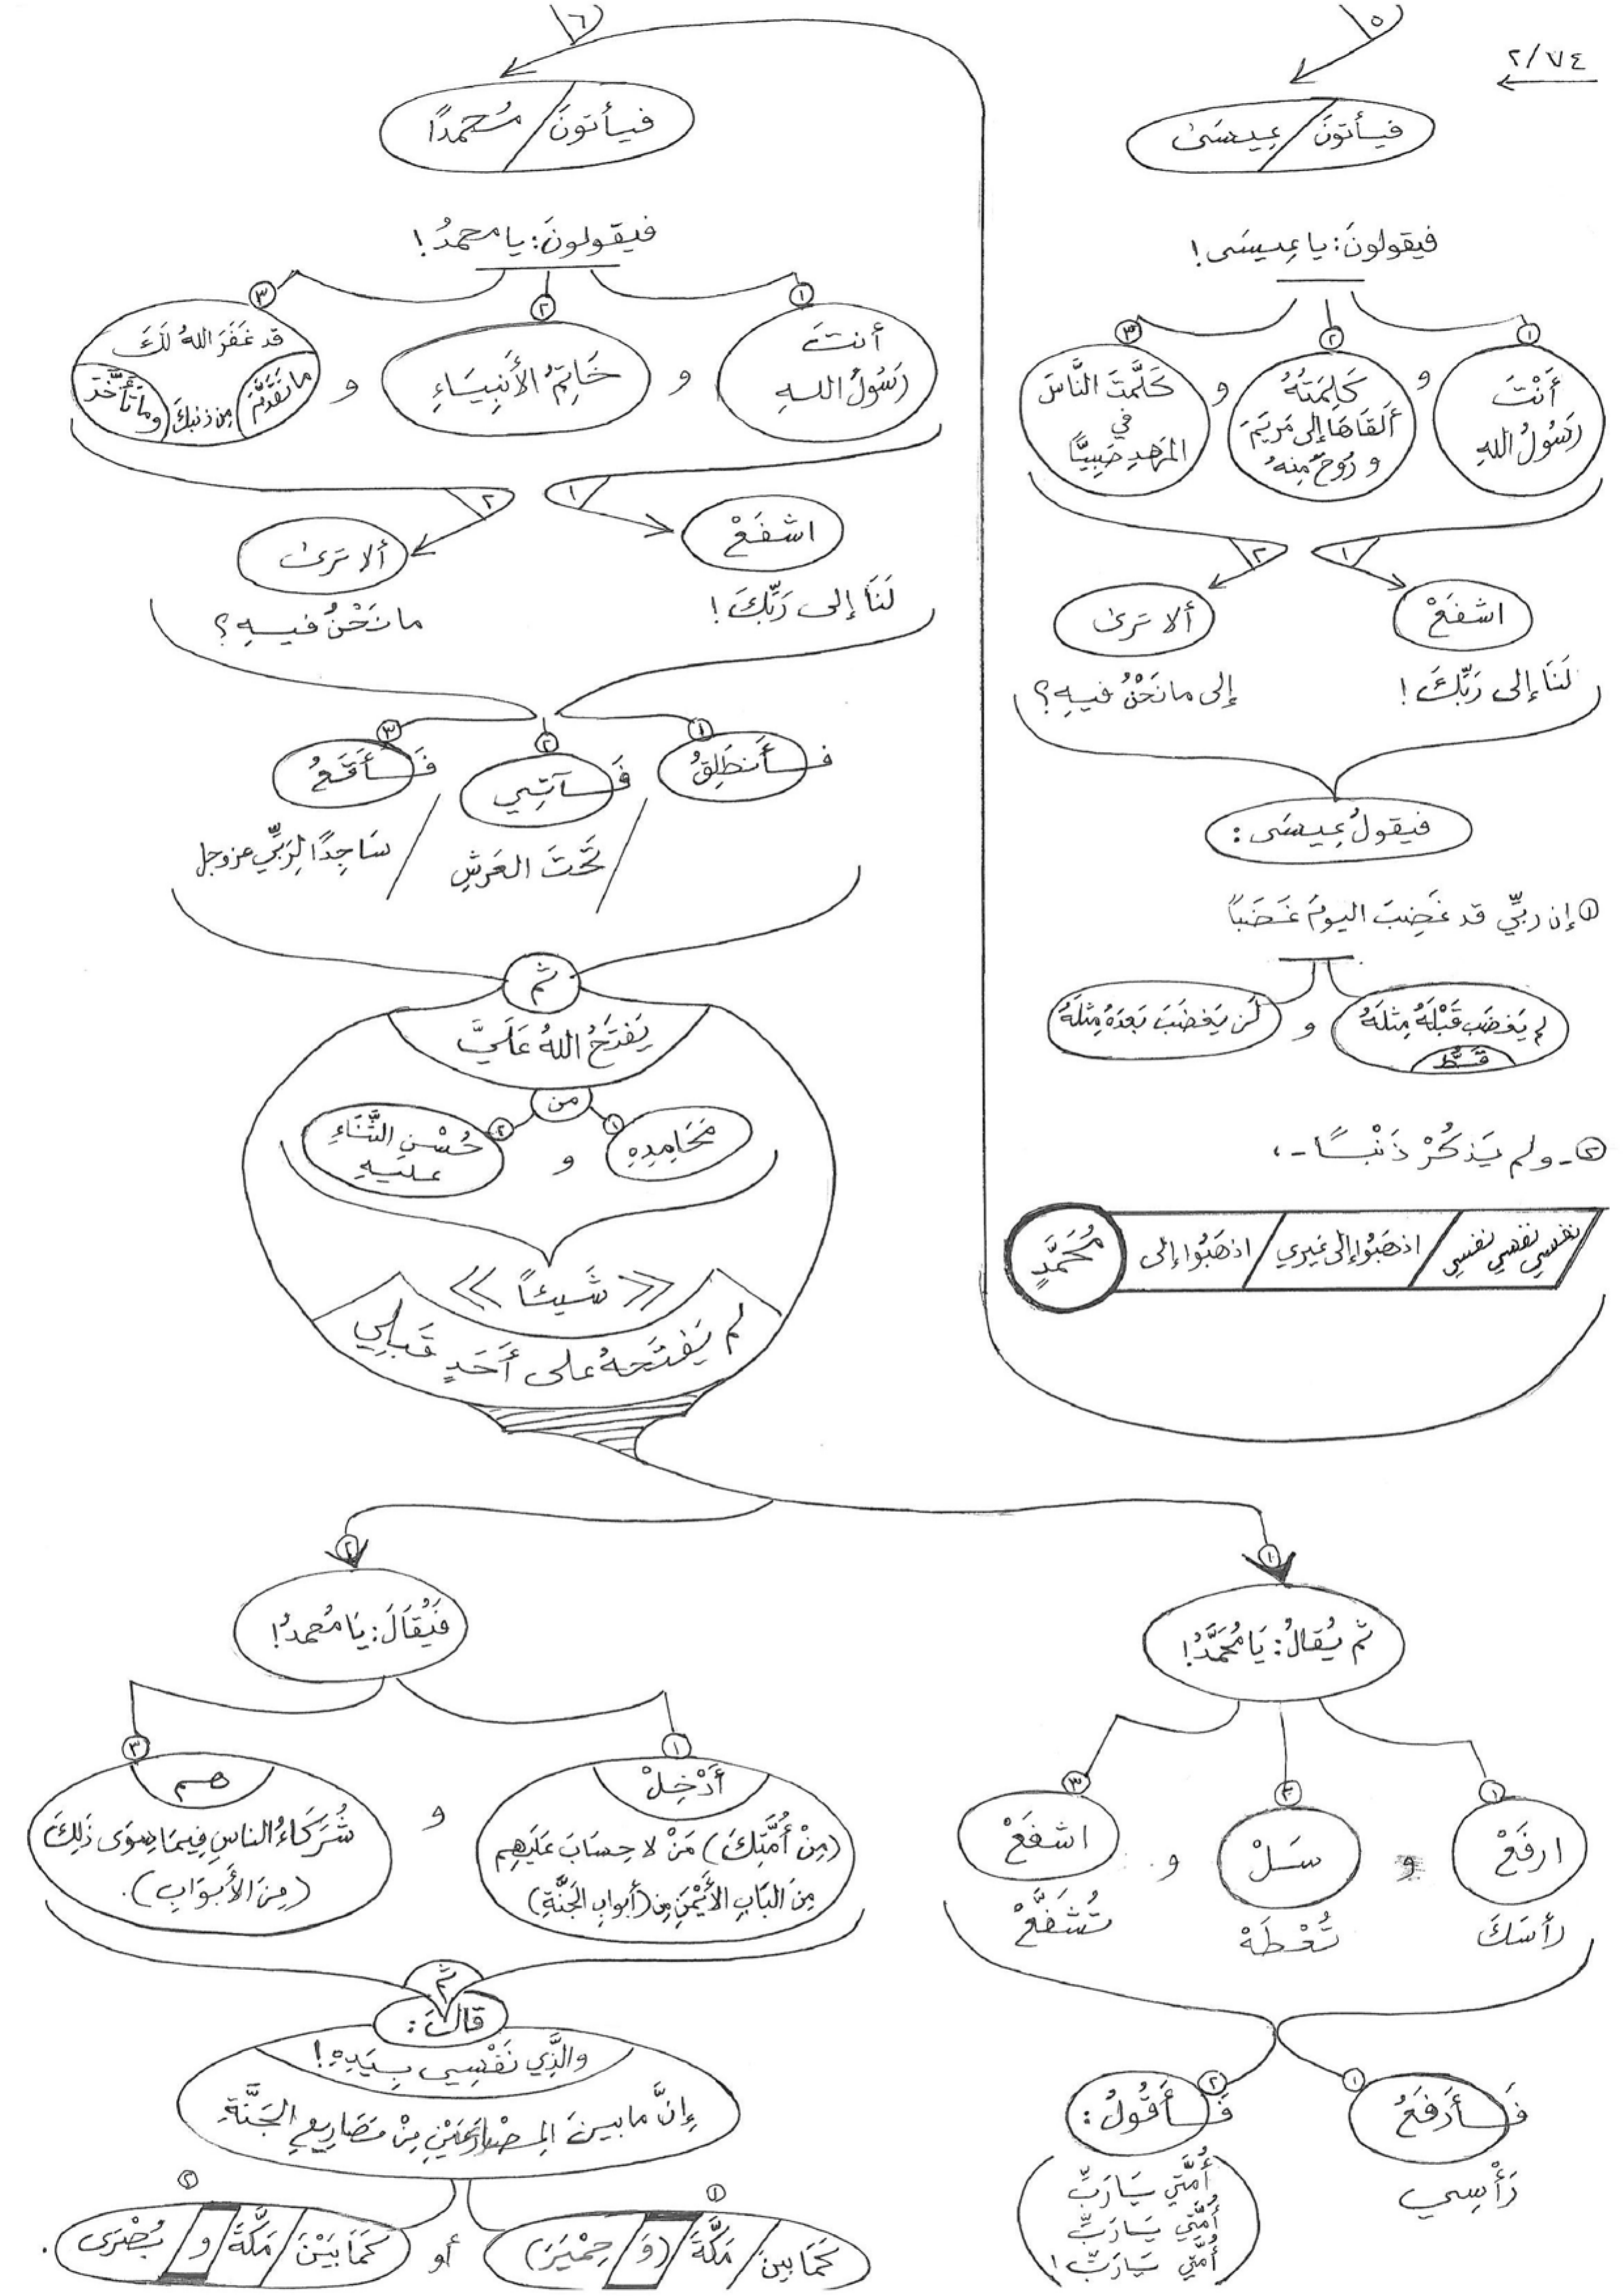 ٢/٧٤
٥
فيأتونَ / عِيسَىٰ
فيقولونَ: يا عِيسَى!
١
أَنْتَ
رَسُولُ اللهِ
و
٢
كَلِمَتُهُ
أَلقَاهَا إلى مَرْيَمَ
و رُوحٌ مِنهُ
و
٣
كَلَّمتَ النَّاسَ
في
المَهدِ صَبِيًّا
١
اشفَعْ
لَنَا إلى رَبِّكَ!
٢
ألا تَرَىٰ
إلى ما نَحْنُ فيهِ؟
فيقولُ عِيسَى:
١ إن ربِّي قد غَضِبَ اليومَ غَضَبًا
لم يَغضَب قَبْلَهُ مِثلَهُ
قَطُّ
و
لَن يَغضَبَ بَعدَهُ مِثلَهُ
٢ - ولم يَذكُرْ ذَنْبًا -،
نفسِي نفسِي نفسِي / اذهَبُوا إلى غيرِي / اذهَبُوا إلى مُحَمَّدٍ
٦
فيأتونَ / مُحمدًا
فيقولونَ: يا محمدُ!
١
أنتَ
رَسُولُ اللهِ
و
٢
خَاتِمُ الأَنبِيَاءِ
و
٣
قد غَفَرَ اللهُ لَكَ
ما تَقَدَّمَ مِن ذنبِكَ وما تَأَخَّرَ
١
اشفَعْ
لَنَا إلى رَبِّكَ!
٢
ألا تَرَىٰ
ما نَحْنُ فيهِ؟
١
فـأَنطَلِقُ
٢
فَـآتِي
تَحْتَ العَرشِ
٣
فَـأَقَعُ
سَاجِدًا لِرَبِّي عز وجل
ثم
يَفتَحُ اللهُ عَلَيَّ
من
١
مَحَامِدِهِ
و
٢
حُسْنِ الثَّنَاءِ
عليهِ
« شَيئًا »
لم يَفتَحهُ على أَحَدٍ قَبلِي
١
ثم يُقالُ: يَا مُحَمَّدُ!
١
ارفَعْ
رأسَكَ
و
٢
سَلْ
تُعْطَهْ
و
٣
اشفَعْ
تُشَفَّعْ
١
فَـأَرفَعُ
رَأْسِي
٢
فَـأَقُولُ:
أُمَّتِي يَا رَبِّ
أُمَّتِي يَا رَبِّ
أُمَّتِي يَا رَبِّ!
٢
فَيُقَالَ: يَا مُحمدُ!
١
أَدْخِلْ
(مِنْ أُمَّتِكَ) مَنْ لا حِسَابَ عَلَيهِم
مِنَ البَابِ الأَيْمَنِ مِن (أبوابِ الجَنَّةِ)
و
٣
هم
شُرَكَاءُ الناسِ فِيمَا سِوَى ذَلِكَ
(مِنَ الأَبوَابِ).
ثم
قالَ:
والَّذِي نَفْسِي بِيَدِهِ!
إِنَّ ما بينَ المِصْرَاعَيْنِ مِنْ مَصَارِيعِ الجَنَّةِ
١
كَمَا بينَ / مَكَّةَ / (وَ / حِمْيَرَ)
أو
٢
كَمَا بَيْنَ / مَكَّةَ / و / بُصْرَى.